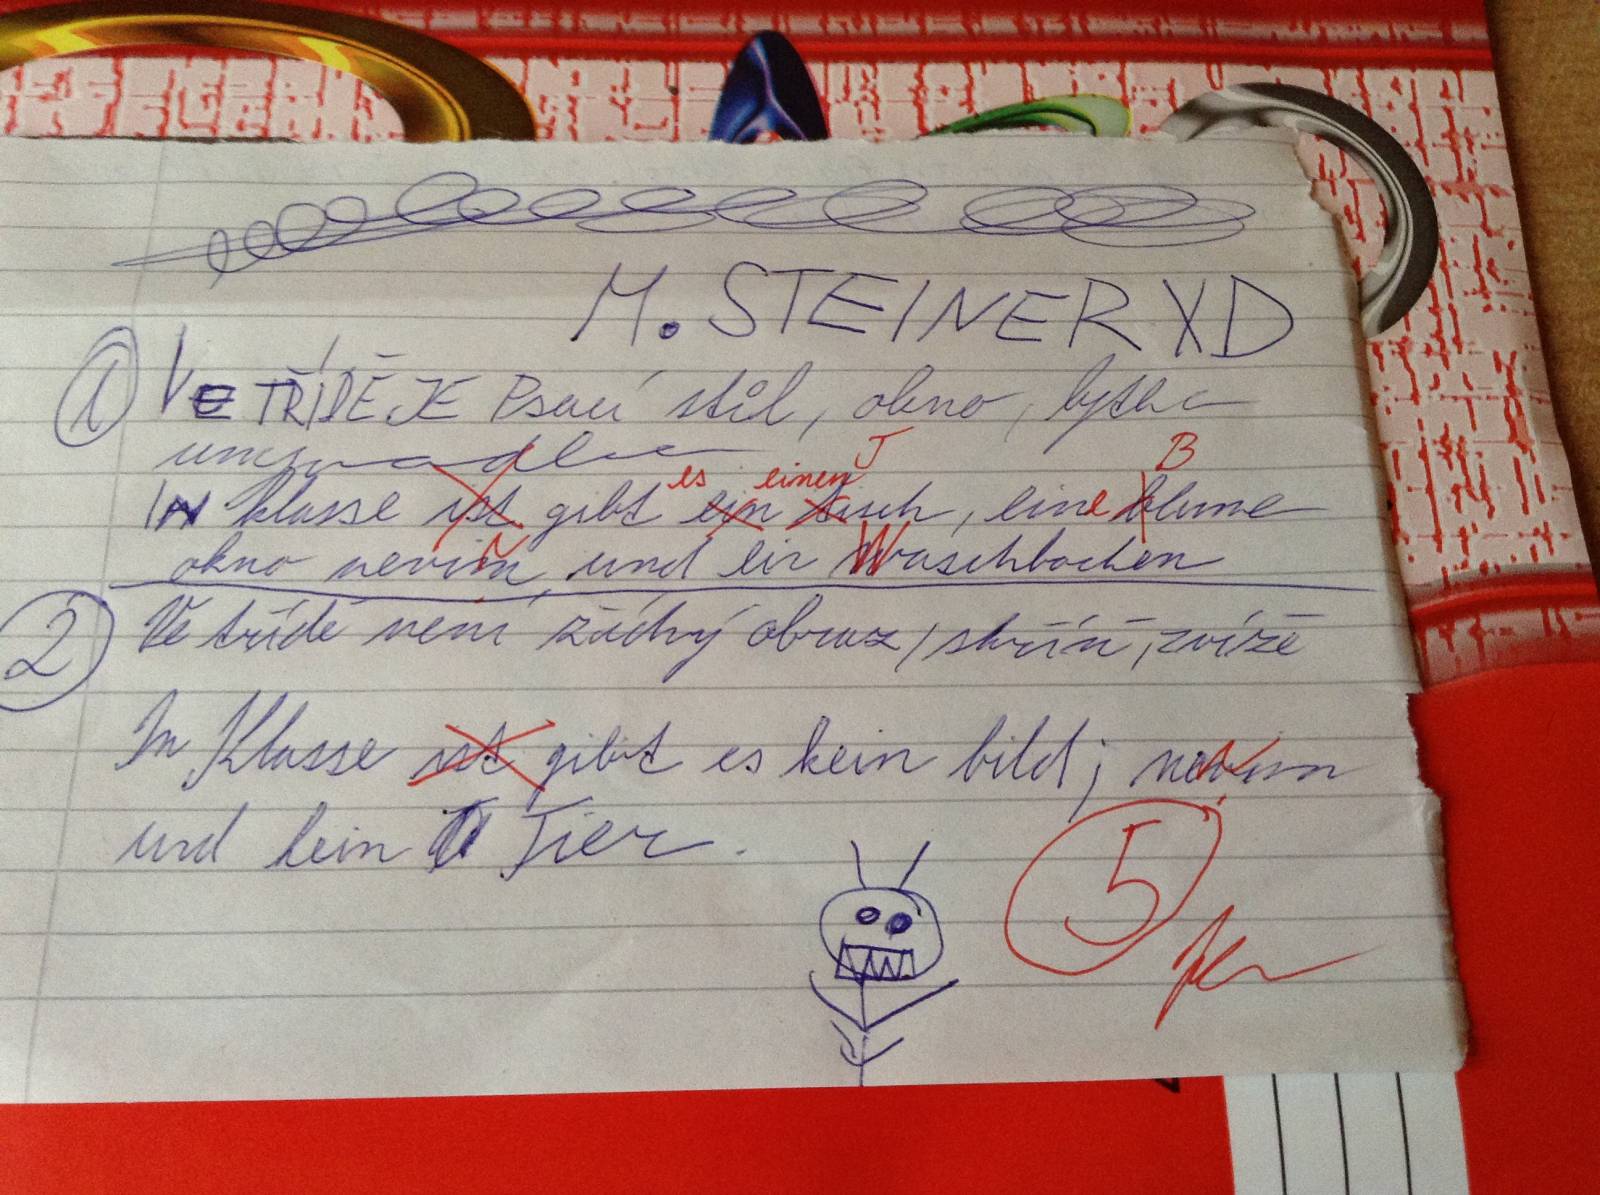 M. STEINER XD
1 VE TŘÍDĚ JE Psací stůl, okno, kytka
umyvadlo
es einen J B
IN klasse ist gibt ein tisch, eine blume
okno nevim, und ein Waschbecken
2 Ve třídě není žádný obraz, skříň, zvíře
In Klasse ist gibt es kein bild, nevim
und kein Tier.
5